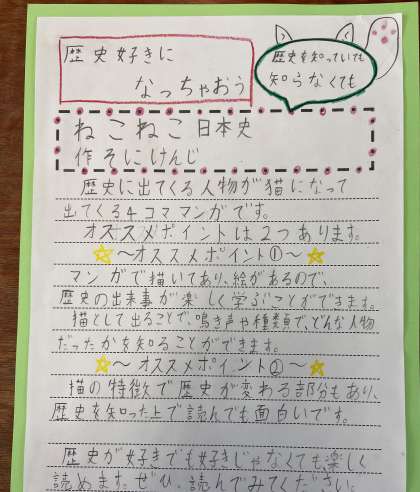 歴史好きに
なっちゃおう
歴史を知っていても
知らなくても
ねこねこ日本史
作 そにけんじ
歴史に出てくる人物が猫になって
出てくる4コママンガです。
オススメポイントは2つあります。
～オススメポイント①～
マンガで描いてあり、絵があるので、
歴史の出来事が楽しく学ぶことができます。
猫として出ることで、鳴き声や種類で、どんな人物
だったかを知ることができます。
～オススメポイント②～
猫の特徴で歴史が変わる部分もあり、
歴史を知った上で読んでも面白いです。
歴史が好きでも好きじゃなくても楽しく
読めます。ぜひ、読んでみてください。